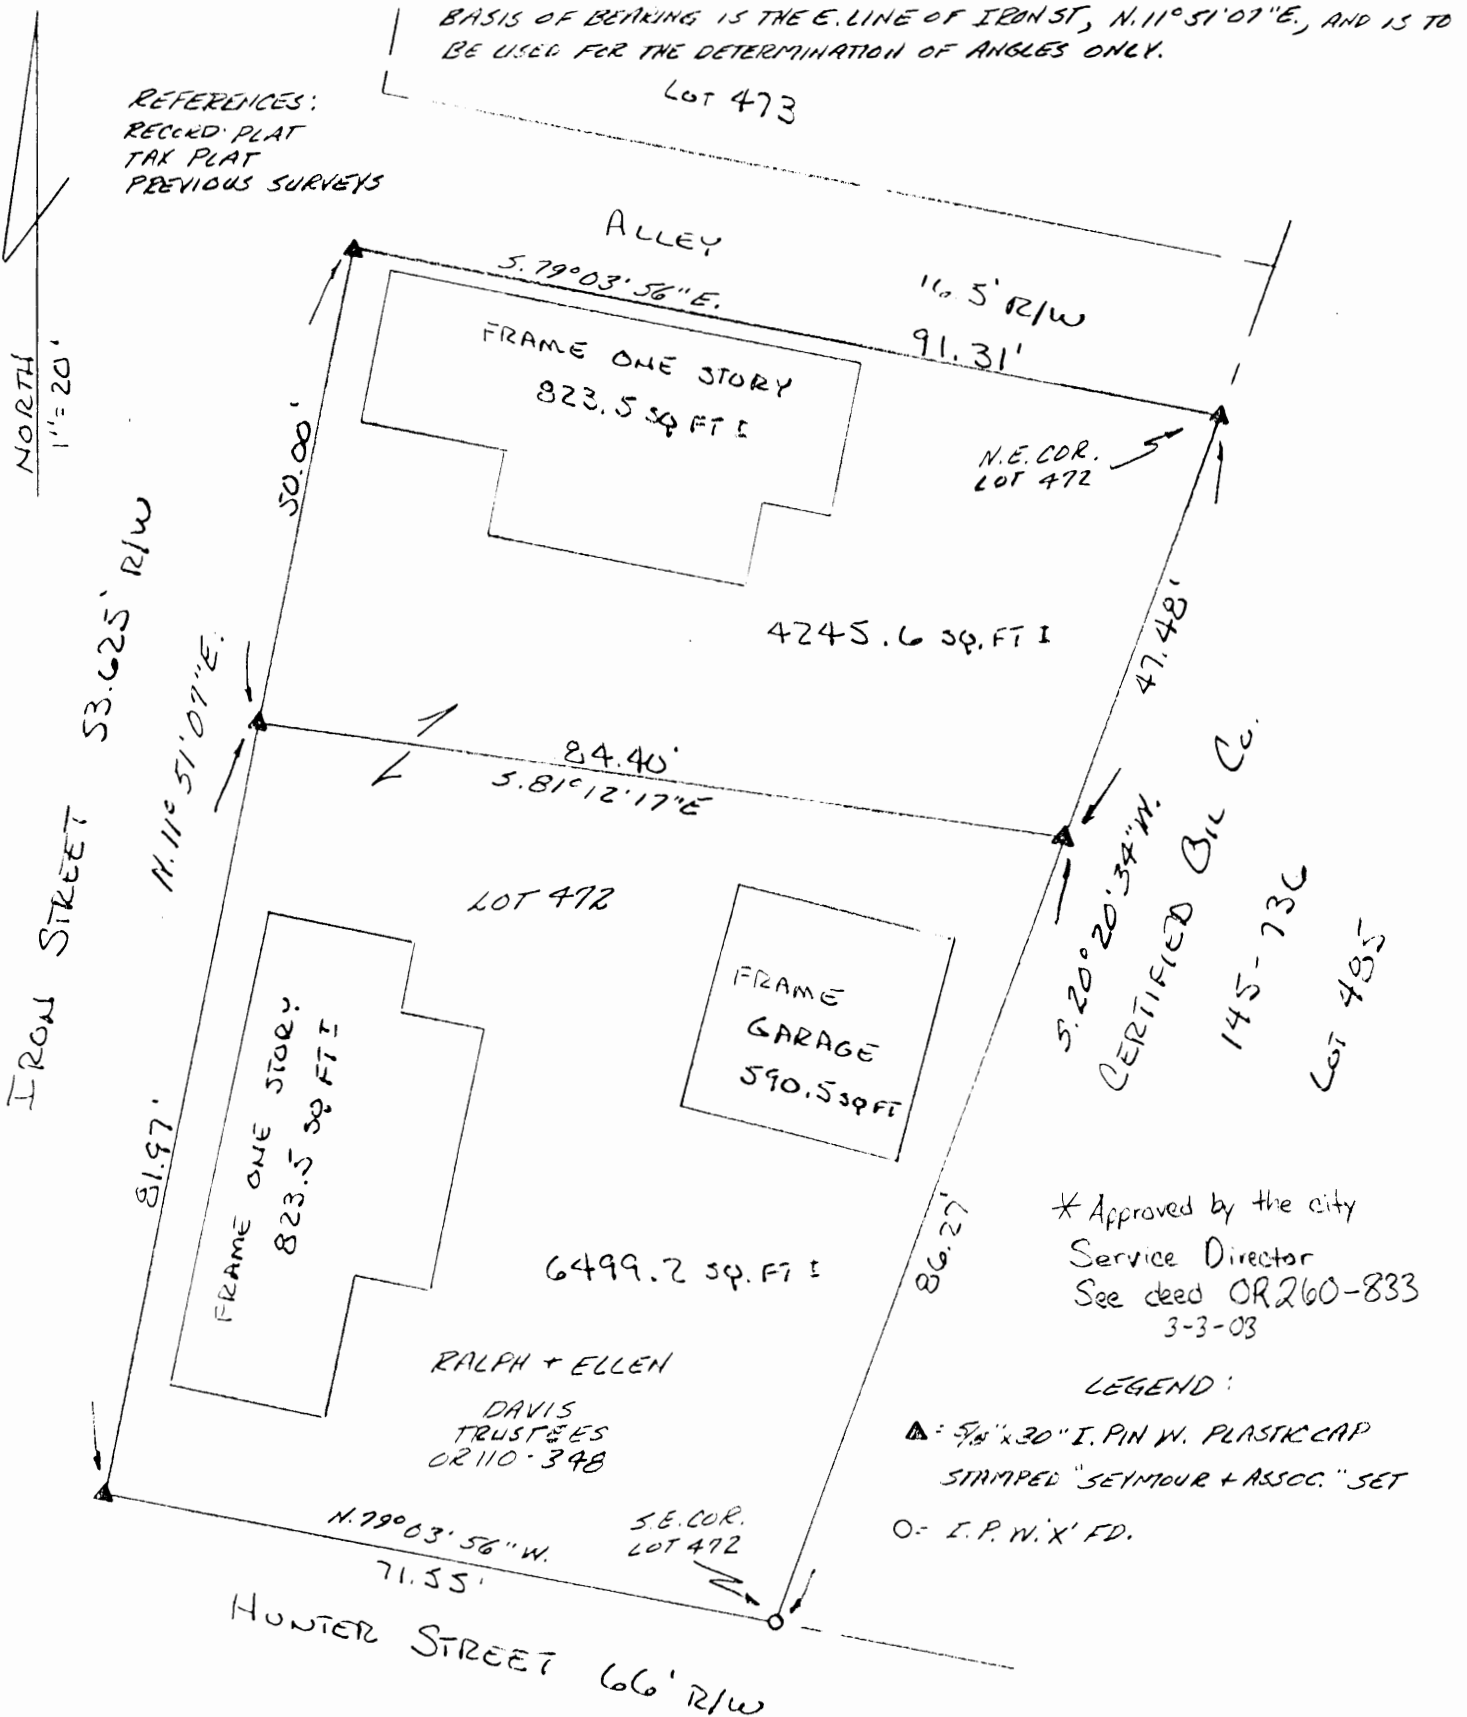 BASIS OF BEARING IS THE E. LINE OF IRON ST, N. 11° 51' 07" E., AND IS TO
BE USED FOR THE DETERMINATION OF ANGLES ONLY.
LOT 473
REFERENCES:
RECORD PLAT
TAX PLAT
PREVIOUS SURVEYS
NORTH
1"=20'
ALLEY
S. 79° 03' 56" E.
16.5' R/W
91.31'
FRAME ONE STORY
823.5 SQ FT ±
N.E. COR.
LOT 472
50.00'
IRON STREET 53.625' R/W
N. 11° 51' 07" E.
4245.6 SQ. FT ±
47.48'
84.40'
S. 81° 12' 17" E
S. 20° 20' 34" W.
CERTIFIED OIL CO.
145-736
LOT 485
LOT 472
FRAME
GARAGE
590.5 SQ FT
FRAME ONE STORY
823.5 SQ FT ±
81.97'
86.27'
6499.2 SQ. FT ±
* Approved by the city
Service Director
See deed OR260-833
3-3-03
RALPH + ELLEN
DAVIS
TRUSTEES
OR 110-348
LEGEND:
▲= 5/8" x 30" I. PIN W. PLASTIC CAP
STAMPED "SEYMOUR + ASSOC." SET
O= I.P. W. 'X' FD.
N. 79° 03' 56" W.
71.55'
S.E. COR.
LOT 472
HUNTER STREET 66' R/W